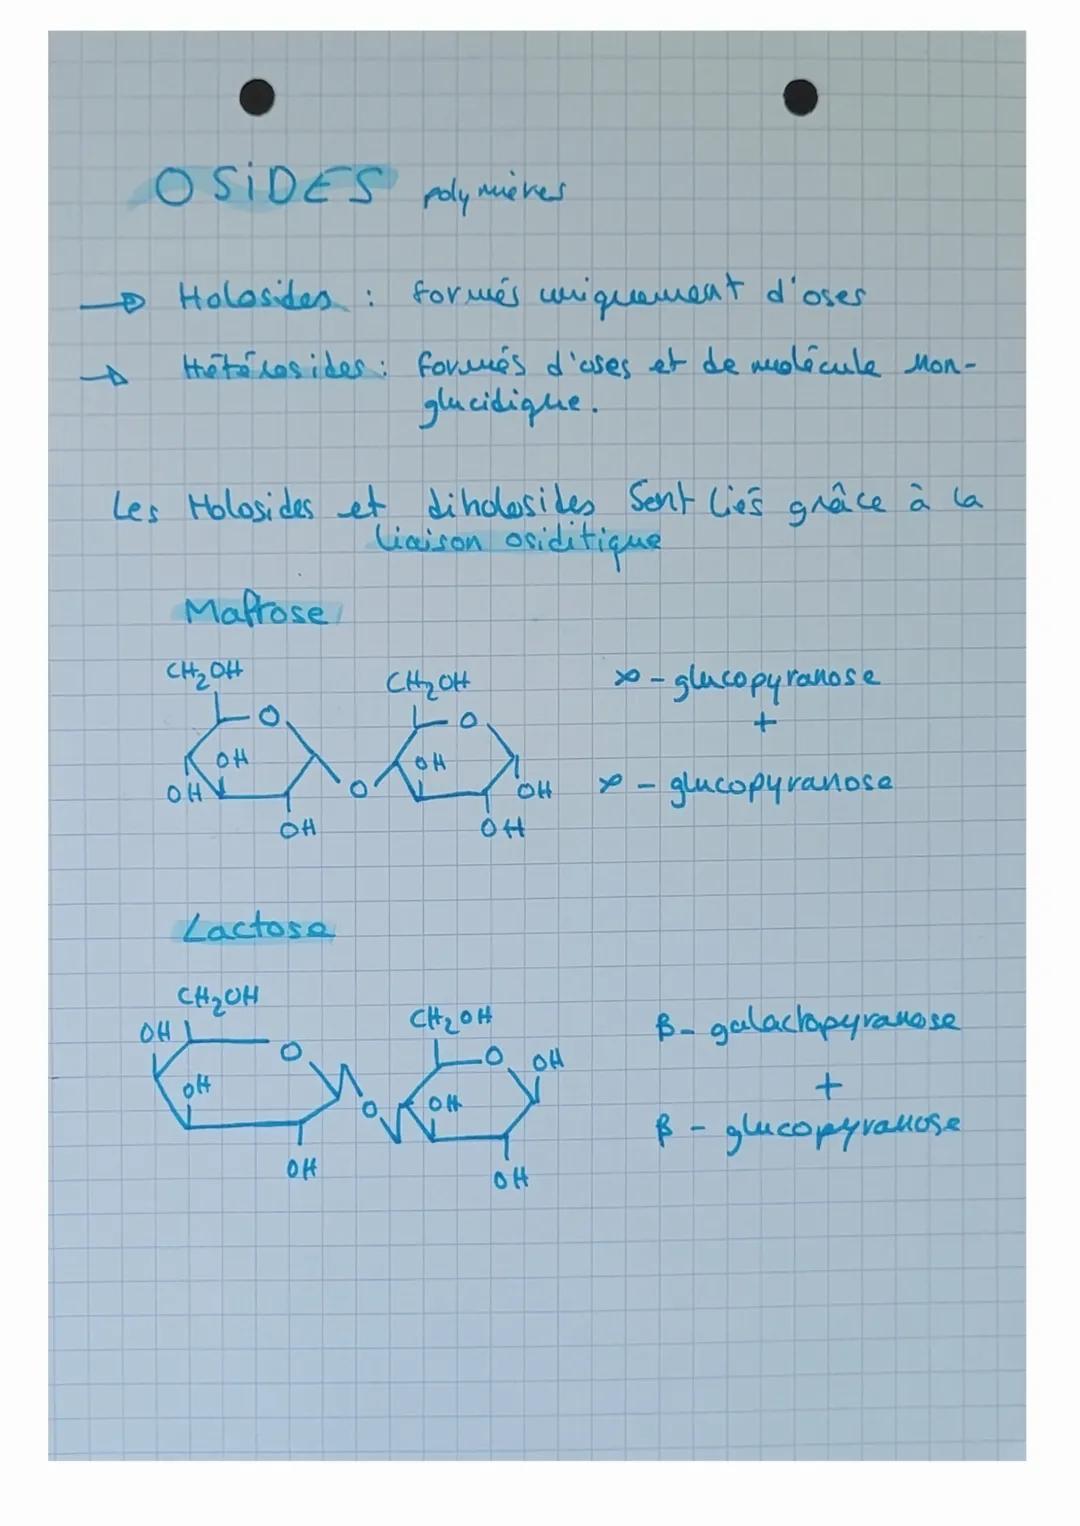 OSiDES polymères
→ Holosides : formés uniquement d'oses
→ Hétérosides : formés d'oses et de molécule non-
glucidique.
Les Holosides et diholosides sont liés grâce à la
liaison osiditique
Maltose
CH₂OH
CH₂OH
α - glucopyranose
O
O
+
OH
OH
OH
O
OH
α - glucopyranose
OH
OH
Lactose
CH₂OH
CH₂OH
β - galactopyranose
OH
O
O
OH
+
OH
O
OH
β - glucopyranose
OH
OH